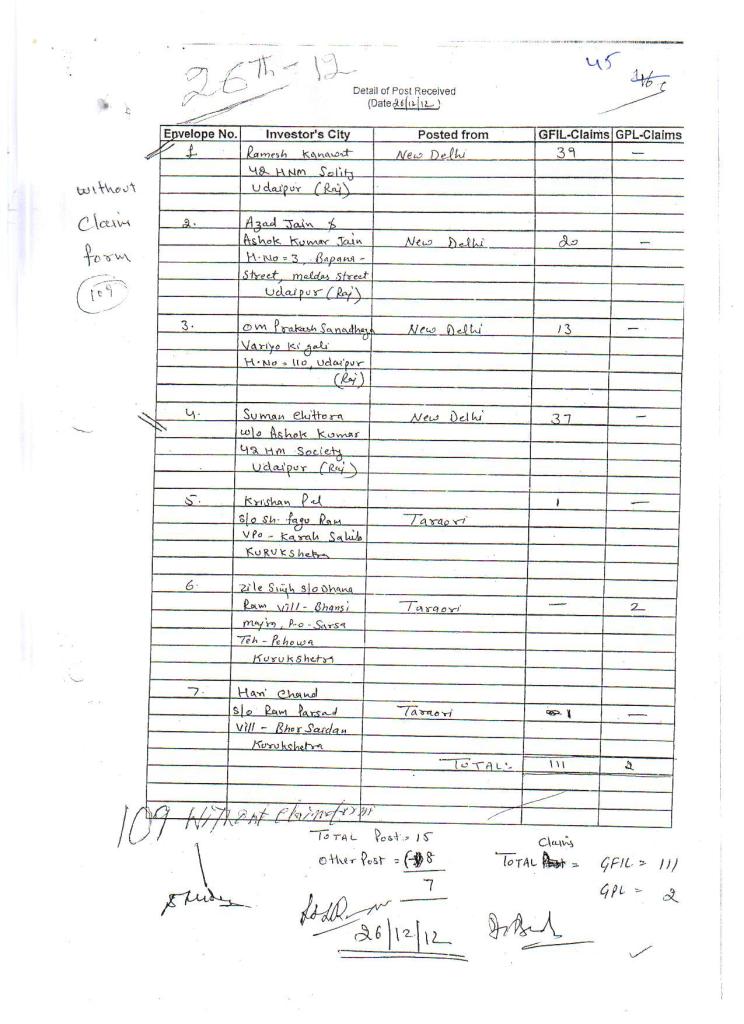 26Th - 12
45
Detail of Post Received
(Date 26/12/12)
Envelope No. Investor's City Posted from GFIL-Claims GPL-Claims
1 Ramesh Kanawat New Delhi 39 —
42 HNM Solity
Udaipur (Raj)
without
Claim
form
109
2. Azad Jain &
Ashok Kumar Jain New Delhi 20 —
H.No = 3, Bapana -
Street, maldas street
Udaipur (Raj)
3. Om Prakash Sanadhaya New Delhi 13 —
Variyo ki gali
H.No = 110, Udaipur
(Raj)
4. Suman Chittora New Delhi 37 —
w/o Ashok Kumar
42 HM Society
Udaipur (Raj)
5. Krishan Pal 1 —
s/o Sh. fagu Ram Taraori
VPO - Karah Sahib
KURUKShetra
6. Zile Singh s/o Dhana
Ram Vill - Bhansi Taraori — 2
majra, P.o - Sarsa
Teh - Pehowa
Kurukshetra
7. Hari Chand
s/o Ram Parsad Taraori 1 —
Vill - Bhor Saidan
Kurukshetra
TOTAL:- 111 2
109 Without Claim form
TOTAL Post = 15
Other Post = (-) 8
7
Claims
TOTAL = GFIL = 111
GPL = 2
26/12/12